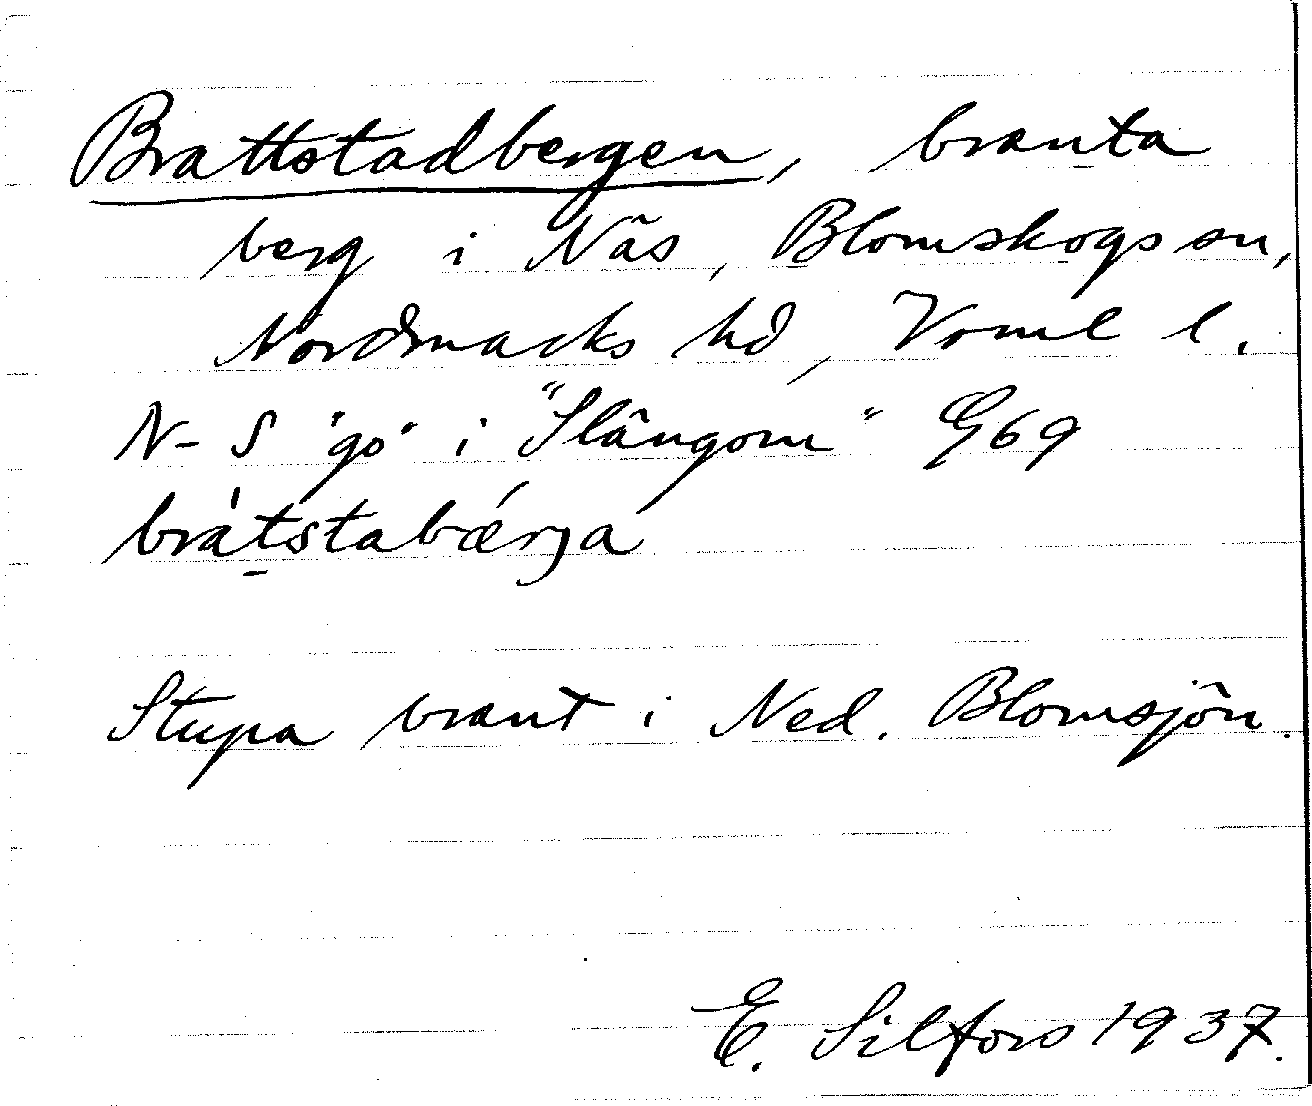 Brattstadbergen, branta
berg i Näs, Blomskogs sn,
Nordmarks hd, Verml l.
N-S "go" i "Slängom" G69
bràtstabǽrja
Stupa brant i Ned. Blomsjön.
E. Silfors 1937.